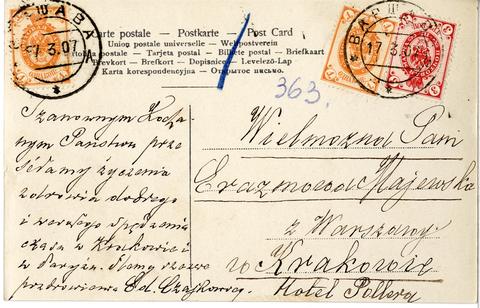 ВАРШАВА
17 3.07
Carte postale – Postkarte – Post Card
Union postale universelle – Weltpostverein
Tarjeta postal – Billete postal – Briefkaart
Brevkort – Brefkort – Dopisnice – Levelező-Lap
Karta korespondencyjna – Открытое письмо.
ВАРШ
17 3.07
363.
Szanownym Kocha
nym Państwu prze
syłamy życzenia
zdrowia dobrego
i wesołego spędzenia
czasu w Krakowie i
w Paryżu.
pozdrowienia Ed. Czajkowscy
Wielmożna Pani
Erazmowa Majewska
z Warszawy
w Krakowie
Hotel Pollera